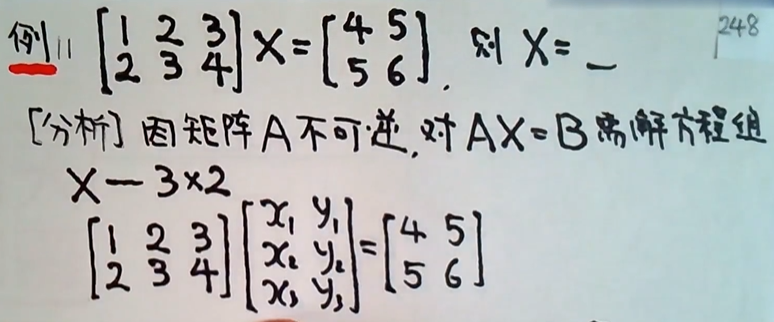 例11 [1 2 3; 2 3 4] X = [4 5; 5 6]. 则 X = _
248
[分析] 因矩阵 A 不可逆, 对 AX = B 需解方程组
X — 3×2
[1 2 3; 2 3 4] [x₁ y₁; x₂ y₂; x₃ y₃] = [4 5; 5 6]